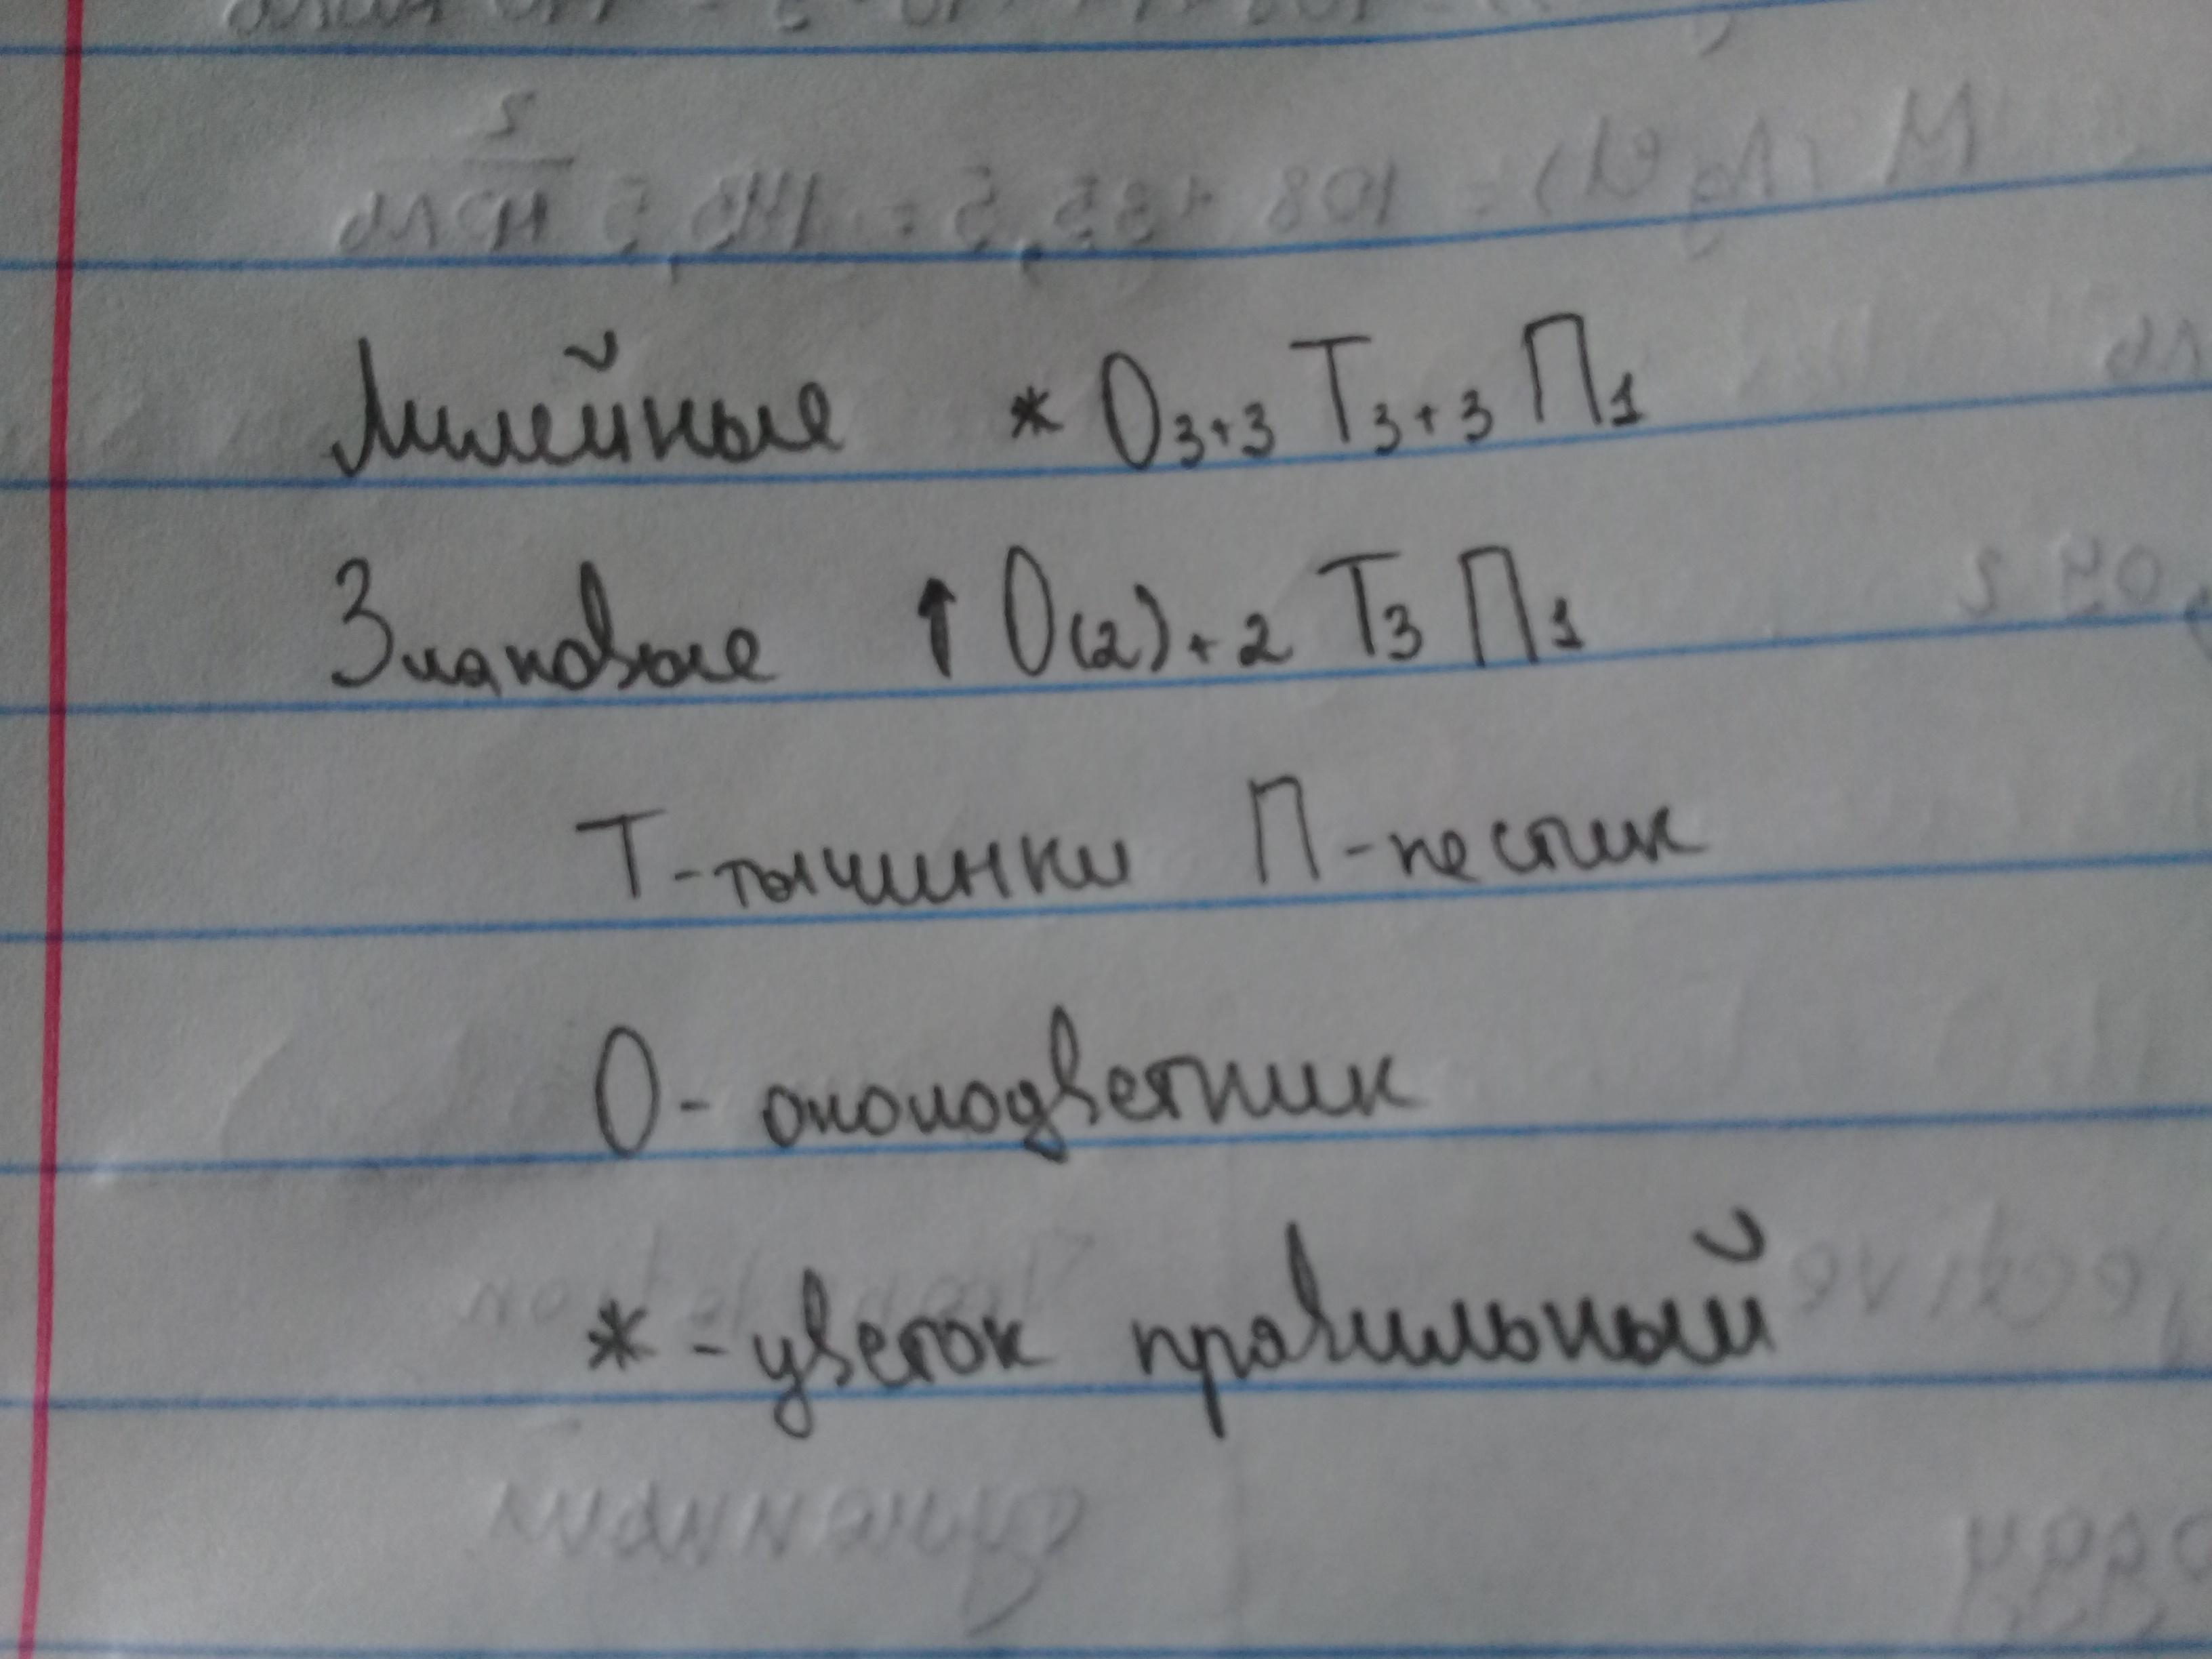 Лилейные * О3+3 Т3+3 П1
Злаковые ↑ О(2)+2 Т3 П1
Т-тычинки П-пестик
О- околоцветник
*-цветок правильный